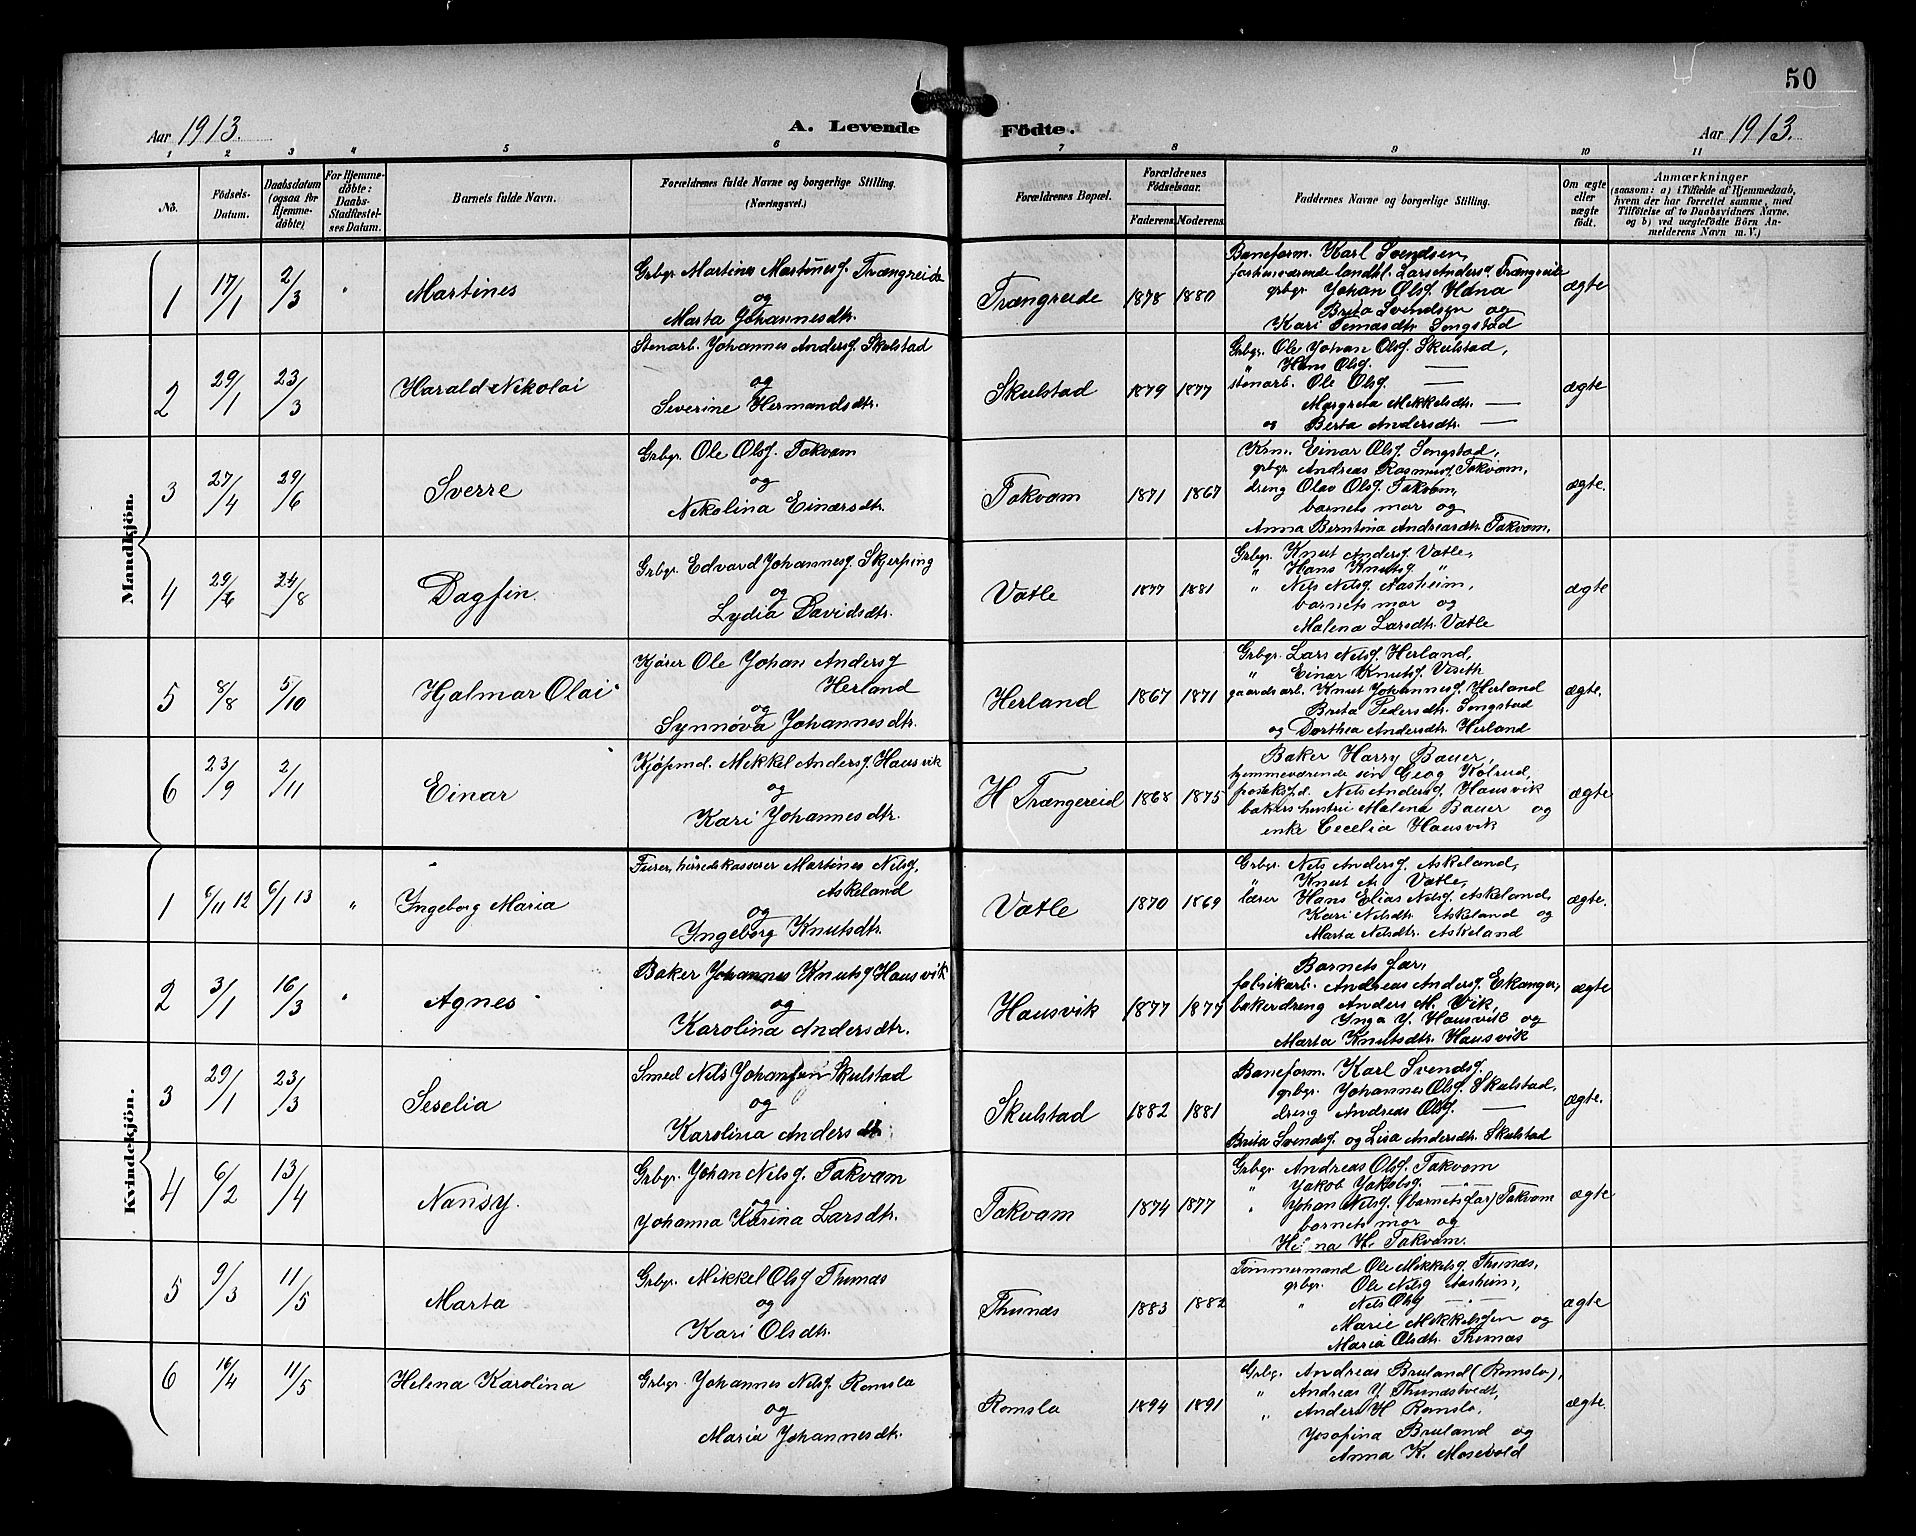 50
Aar 1913.
A. Levende Födte.
Aar 1913.
1 2 3 4 5 6 7 8 9 10 11
No.
Födsels-Datum.
Daabsdatum (ogsaa for Hjemmedöbte)
For Hjemmedöbte: Daabs-Stadfæstelses Datum.
Barnets fulde Navn.
Forældrenes fulde Navne og borgerlige Stilling.
(Næringsvei.)
Forældrenes Bopæl.
Forældrenes Födselsaar.
Faderens.
Moderens.
Faddernes Navne og borgerlige Stilling.
Om ægte eller uægte födt.
Anmærkninger
(saasom: a) i Tilfælde af Hjemmedaab, hvem der har forrettet samme, med Tilföielse af to Daabsvidners Navne. og b) ved uægtefödte Börn Anmelderens Navn m. V.)
Mandkjön.
1 17/1 2/3 " Martines
Grbgr. Martines Martinesf. Trængreide
og
Marta Johannesdtr.
Trængreide 1878 1880
Baneform. Karl Svendsen,
forhenværende landhl. Lars Andersf. Trængreide
grbgr. Johan Olsf. Udna
Brita Svendsen og
Kari Tomasdtr. Songstad
ægte
2 29/1 23/3 Harald Nikolai
Stenarb. Johannes Andersf. Skulstad
og
Severine Hermandsdtr.
Skulstad 1879 1877
Grbgr. Ole Johan Olsf. Skulstad,
" Hans Olsf. —
stenarb. Ole Olsf. —
Margreta Mikkelsdtr. —
og Berta Andersdtr. —
ægte
3 27/4 29/6 Sverre
Grbgr. Ole Olsf. Takvam
og
Nikolina Einarsdtr.
Takvam 1871 1867
Krm. Einar Olsf. Songstad,
grbgr. Andreas Rasmusf. Takvam,
dreng Olav Olsf. Takvam,
barnets mor og
Anna Berntina Andreasdtr. Takvam.
ægte.
4 29/6 24/8 Dagfin.
Grbgr. Edvard Johannesf. Skjerping
og
Lydia Davidsdtr.
Vatle 1877 1881
Grbgr. Knut Andersf. Vatle,
" Hans Knutsf. "
" Nils Nilsf. Aasheim,
barnets mor og
Malena Larsdtr. Vatle
ægte
5 8/8 5/10 Hjalmar Olai
Kjører Ole Johan Andersf
Herland
og
Synnøva Johannesdtr.
Herland 1867 1871
Grbgr. Lars Nilsf. Herland,
" Einar Knutsf.
gaardsarb. Knut Johannesf. Herland
Brita Pedersdtr. Songstad
og Dorthea Andersdtr. Herland
ægte.
6 23/9 2/11 Einar
Kjøpmd. Mikkel Andersf. Hausvik
og
Kari Johannesdtr.
H Trængereid 1868 1875
Baker Harry Bauer,
hjemmeværende søn Georg Kolrud,
posteksp.d. Nils Andersf. Hausvik
bakers hustru Malena Bauer og
enke Cecelia Hausvik
ægte
Kvindekjön.
1 6/11 12 6/1 13 " Ingeborg Maria
herredskasserer Martines Nilsf.
Askeland
og
Ingeborg Knutsdtr.
Vatle 1870 1869
Grbgr. Nils Andersf. Askeland,
" Knut A. Vatle,
lærer Hans Elias Nilsf. Askeland,
Kari Nilsdtr. Askeland og
Marta Nilsdtr. Askeland
ægte.
2 3/1 16/3 " Agnes
Baker Johannes Knutsf Hausvik
og
Karolina Andersdtr.
Hausvik 1877 1877
Barnets far,
fabrikarb. Andreas Andersf. Ekanger,
bakerdreng Anders M. Vik,
Inga J. Hausvik og
Marta Knutsdtr. Hausvik
ægte
3 29/1 23/3 Seselia
Smed Nils Skulstad
og
Karolina Andersdtr.
Skulstad 1882 1881
Baneform. Karl Svendsf.
grbgr. Johannes Olsf. Skulstad,
dreng Andreas Olsf. —
Brita Svendsf. og Lisa Andersdtr. Skulstad
ægte.
4 6/2 13/4 Nansy.
Grbgr. Johan Nilsf. Takvam
og
Johanna Karina Larsdtr.
Takvam 1874 1877
Grbgr. Andreas Olsf. Takvam
" Jakob Jakobsf. —"—
" Johan Nilsf. (barnets far) Takvam
barnets mor og
H. Takvam.
ægte
5 9/3 11/5 Marta
Grbgr. Mikkel Olsf Thunæs
og
Kari Olsdtr.
Thunæs 1883 1882
Tømmermand Ole Mikkelsf. Thunæs,
grbgr. Ole Nilsf Aasheim,
" Nils Olsf —"—
Marie Mikkelsen og
Maria Olsdtr. Thunæs
ægte
6 16/4 11/5 Helena Karolina
Grbgr. Johannes Nilsf. Romslo
og
Maria Johannesdtr.
Romslo 1894 1891
Grbgr. Andreas Bruland (Romslo),
" Andreas J. Thunæstvedt,
" Anders H Romslo,
Josefina Bruland og
Anna K. Mosevold
ægte.